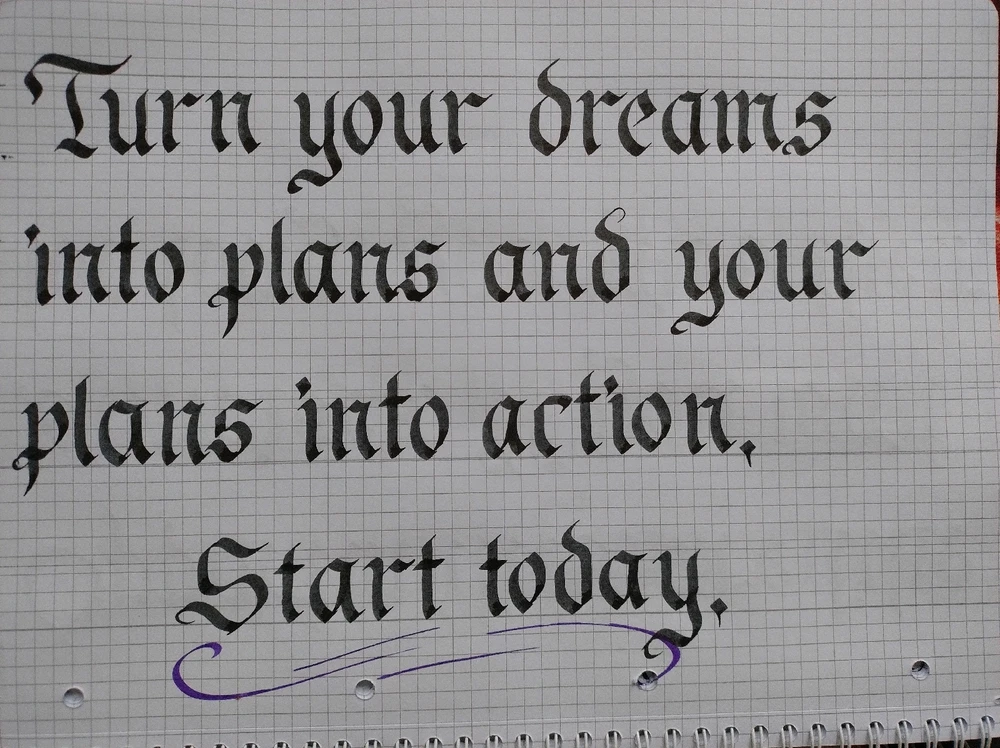 Turn your dreams
into plans and your
plans into action,
Start today.